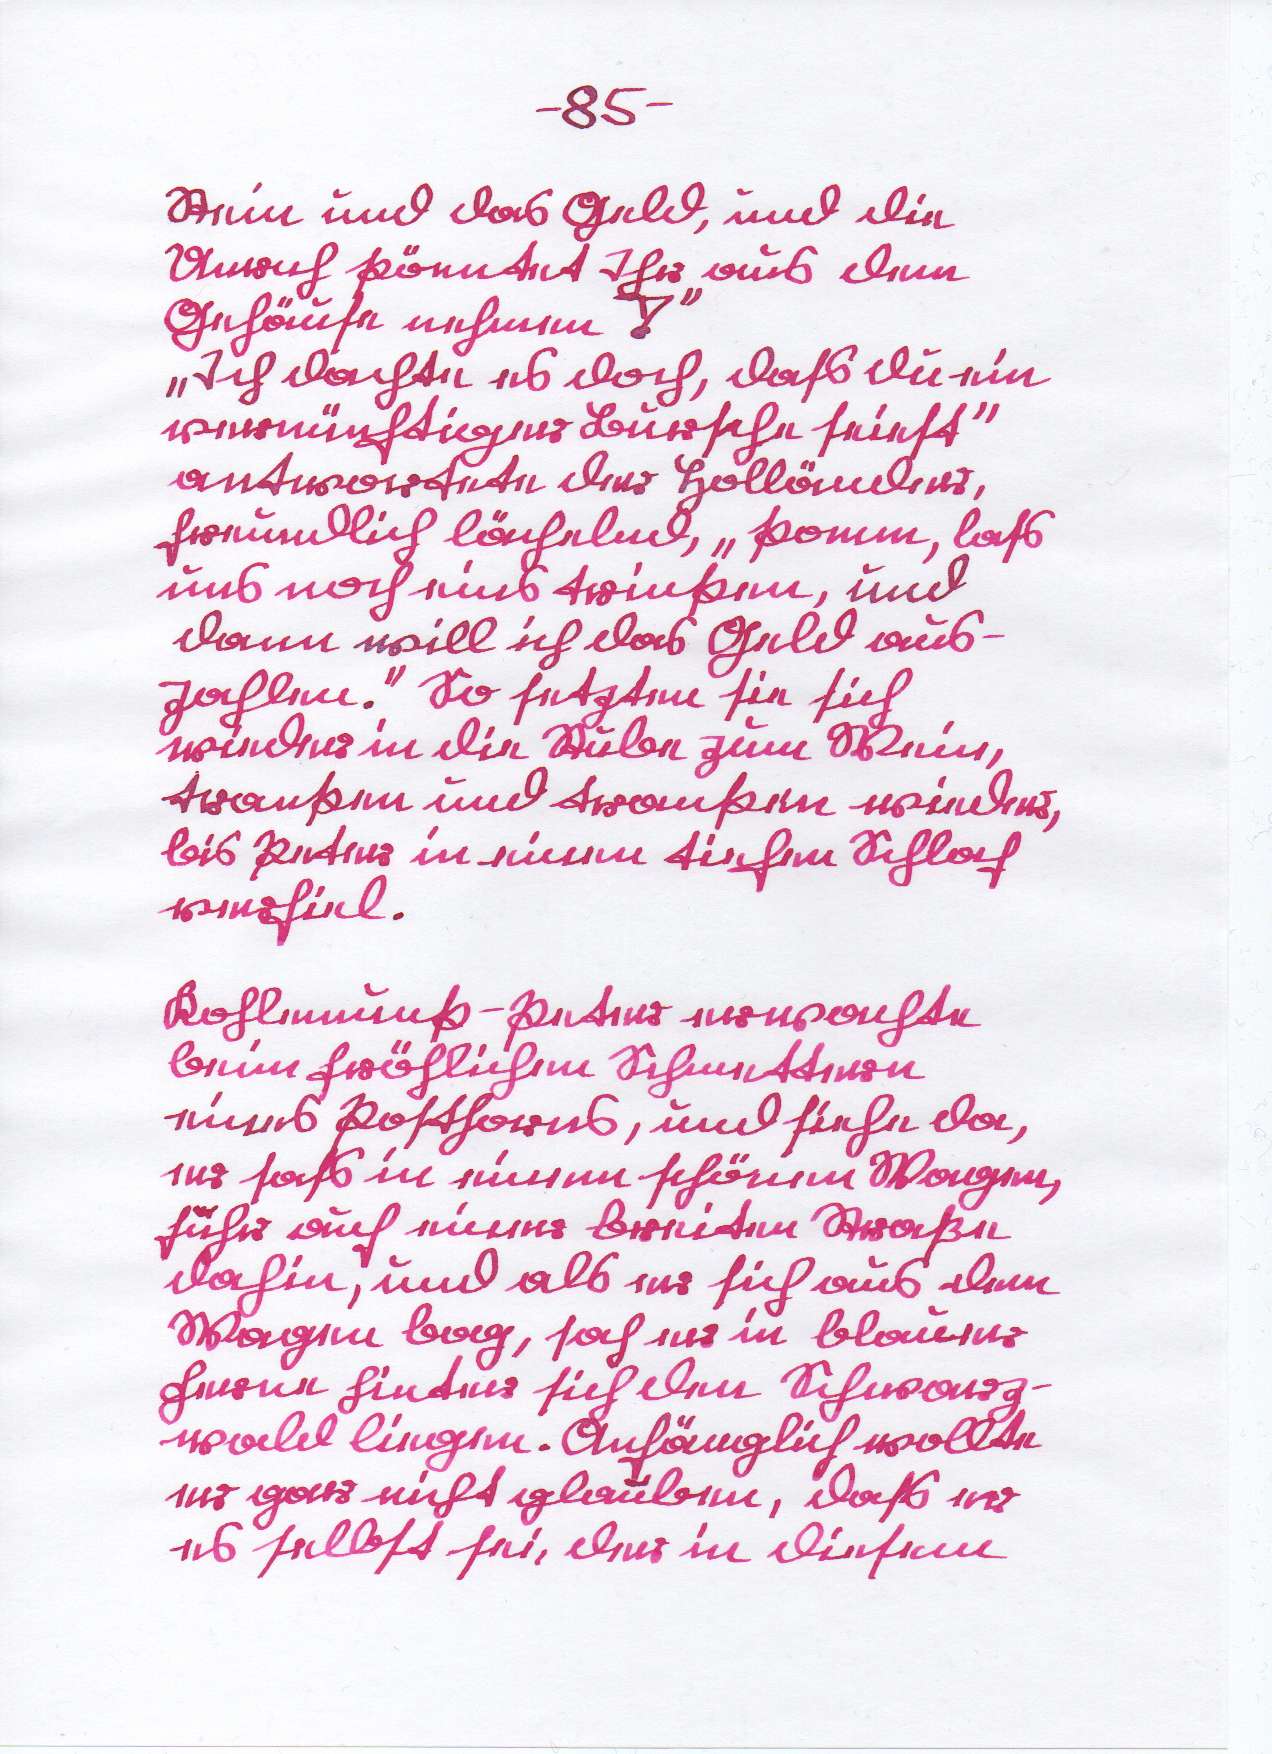 -85-
Stein und das Geld, und die
Unruh könntet Ihr aus dem
Gehäuse nehmen?"
„Ich dachte es doch, daſs du ein
vernünftiger Bursche seiest"
antwortete der Holländer,
freundlich lächelnd, „komm, laſs
uns noch eins trinken, und
dann will ich das Geld aus-
zahlen." So setzten sie sich
wieder in die Stube zum Wein,
tranken und tranken wieder,
bis Peter in einen tiefen Schlaf
verfiel.
Kohlenmunk-Peter erwachte
beim fröhlichen Schmettern
eines Posthorns, und siehe da,
er saſs in einem schönen Wagen,
fuhr auf einer breiten Straße
dahin, und als er sich aus dem
Wagen bog, sah er in blauer
Ferne hinter sich den Schwarz-
wald liegen. Anfänglich wollte
er gar nicht glauben, daſs er
es selbst sei, der in diesem